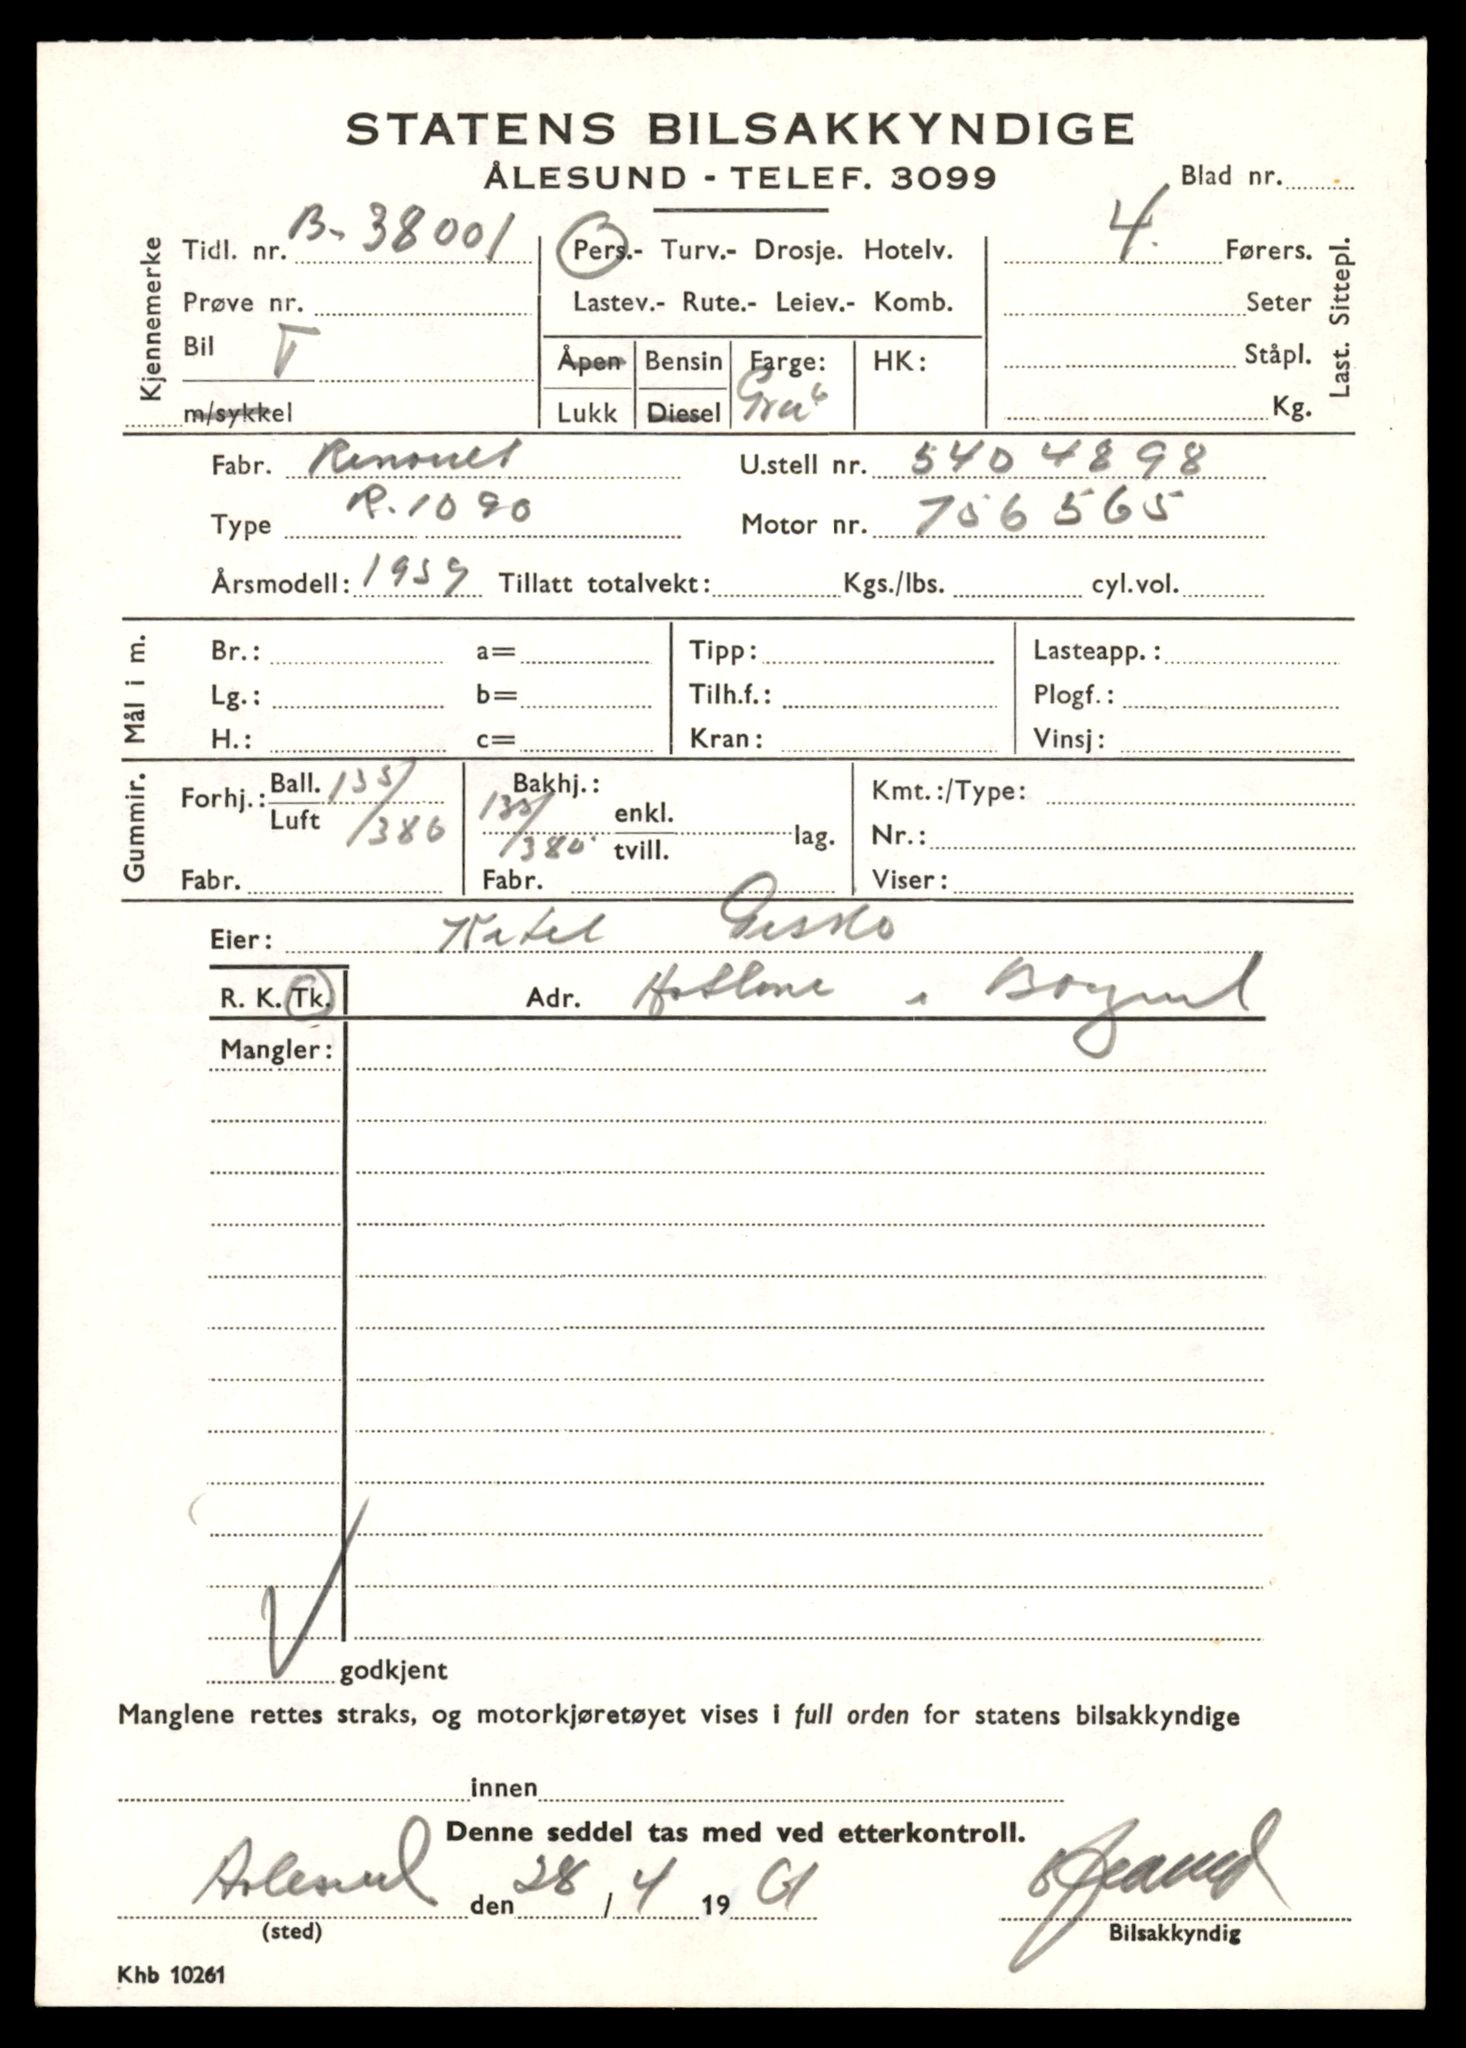 STATENS BILSAKKYNDIGE
ÅLESUND - TELEF. 3099
Blad nr.
Kjennemerke
Tidl. nr. B- 38001
Prøve nr.
Bil T
m/sykkel
Pers.- Turv.- Drosje. Hotelv.
Lastev.- Rute.- Leiev.- Komb.
Åpen Bensin Farge: HK:
Lukk Diesel Grå
4. Førers.
Seter
Ståpl.
Kg.
Last. Sittepl.
Fabr. Renault U.stell nr. 5404898
Type R.1090 Motor nr. 756565
Årsmodell: 1959 Tillatt totalvekt: Kgs./lbs. cyl.vol.
Mål i m.
Br.: a= Tipp: Lasteapp.:
Lg.: b= Tilh.f.: Plogf.:
H.: c= Kran: Vinsj:
Gummir.
Forhj.: Ball. 135/
Luft /380
Fabr.
Bakhj.:
135/ enkl.
/380 tvill. lag.
Fabr.
Kmt.:/Type:
Nr.:
Viser:
Eier: Ketil
R. K. Tk. Adr. i
Mangler:
godkjent
Manglene rettes straks, og motorkjøretøyet vises i full orden for statens bilsakkyndige
innen
Denne seddel tas med ved etterkontroll.
Aalesund den 28/4 19 61
(sted)
Bilsakkyndig
Khb 10261